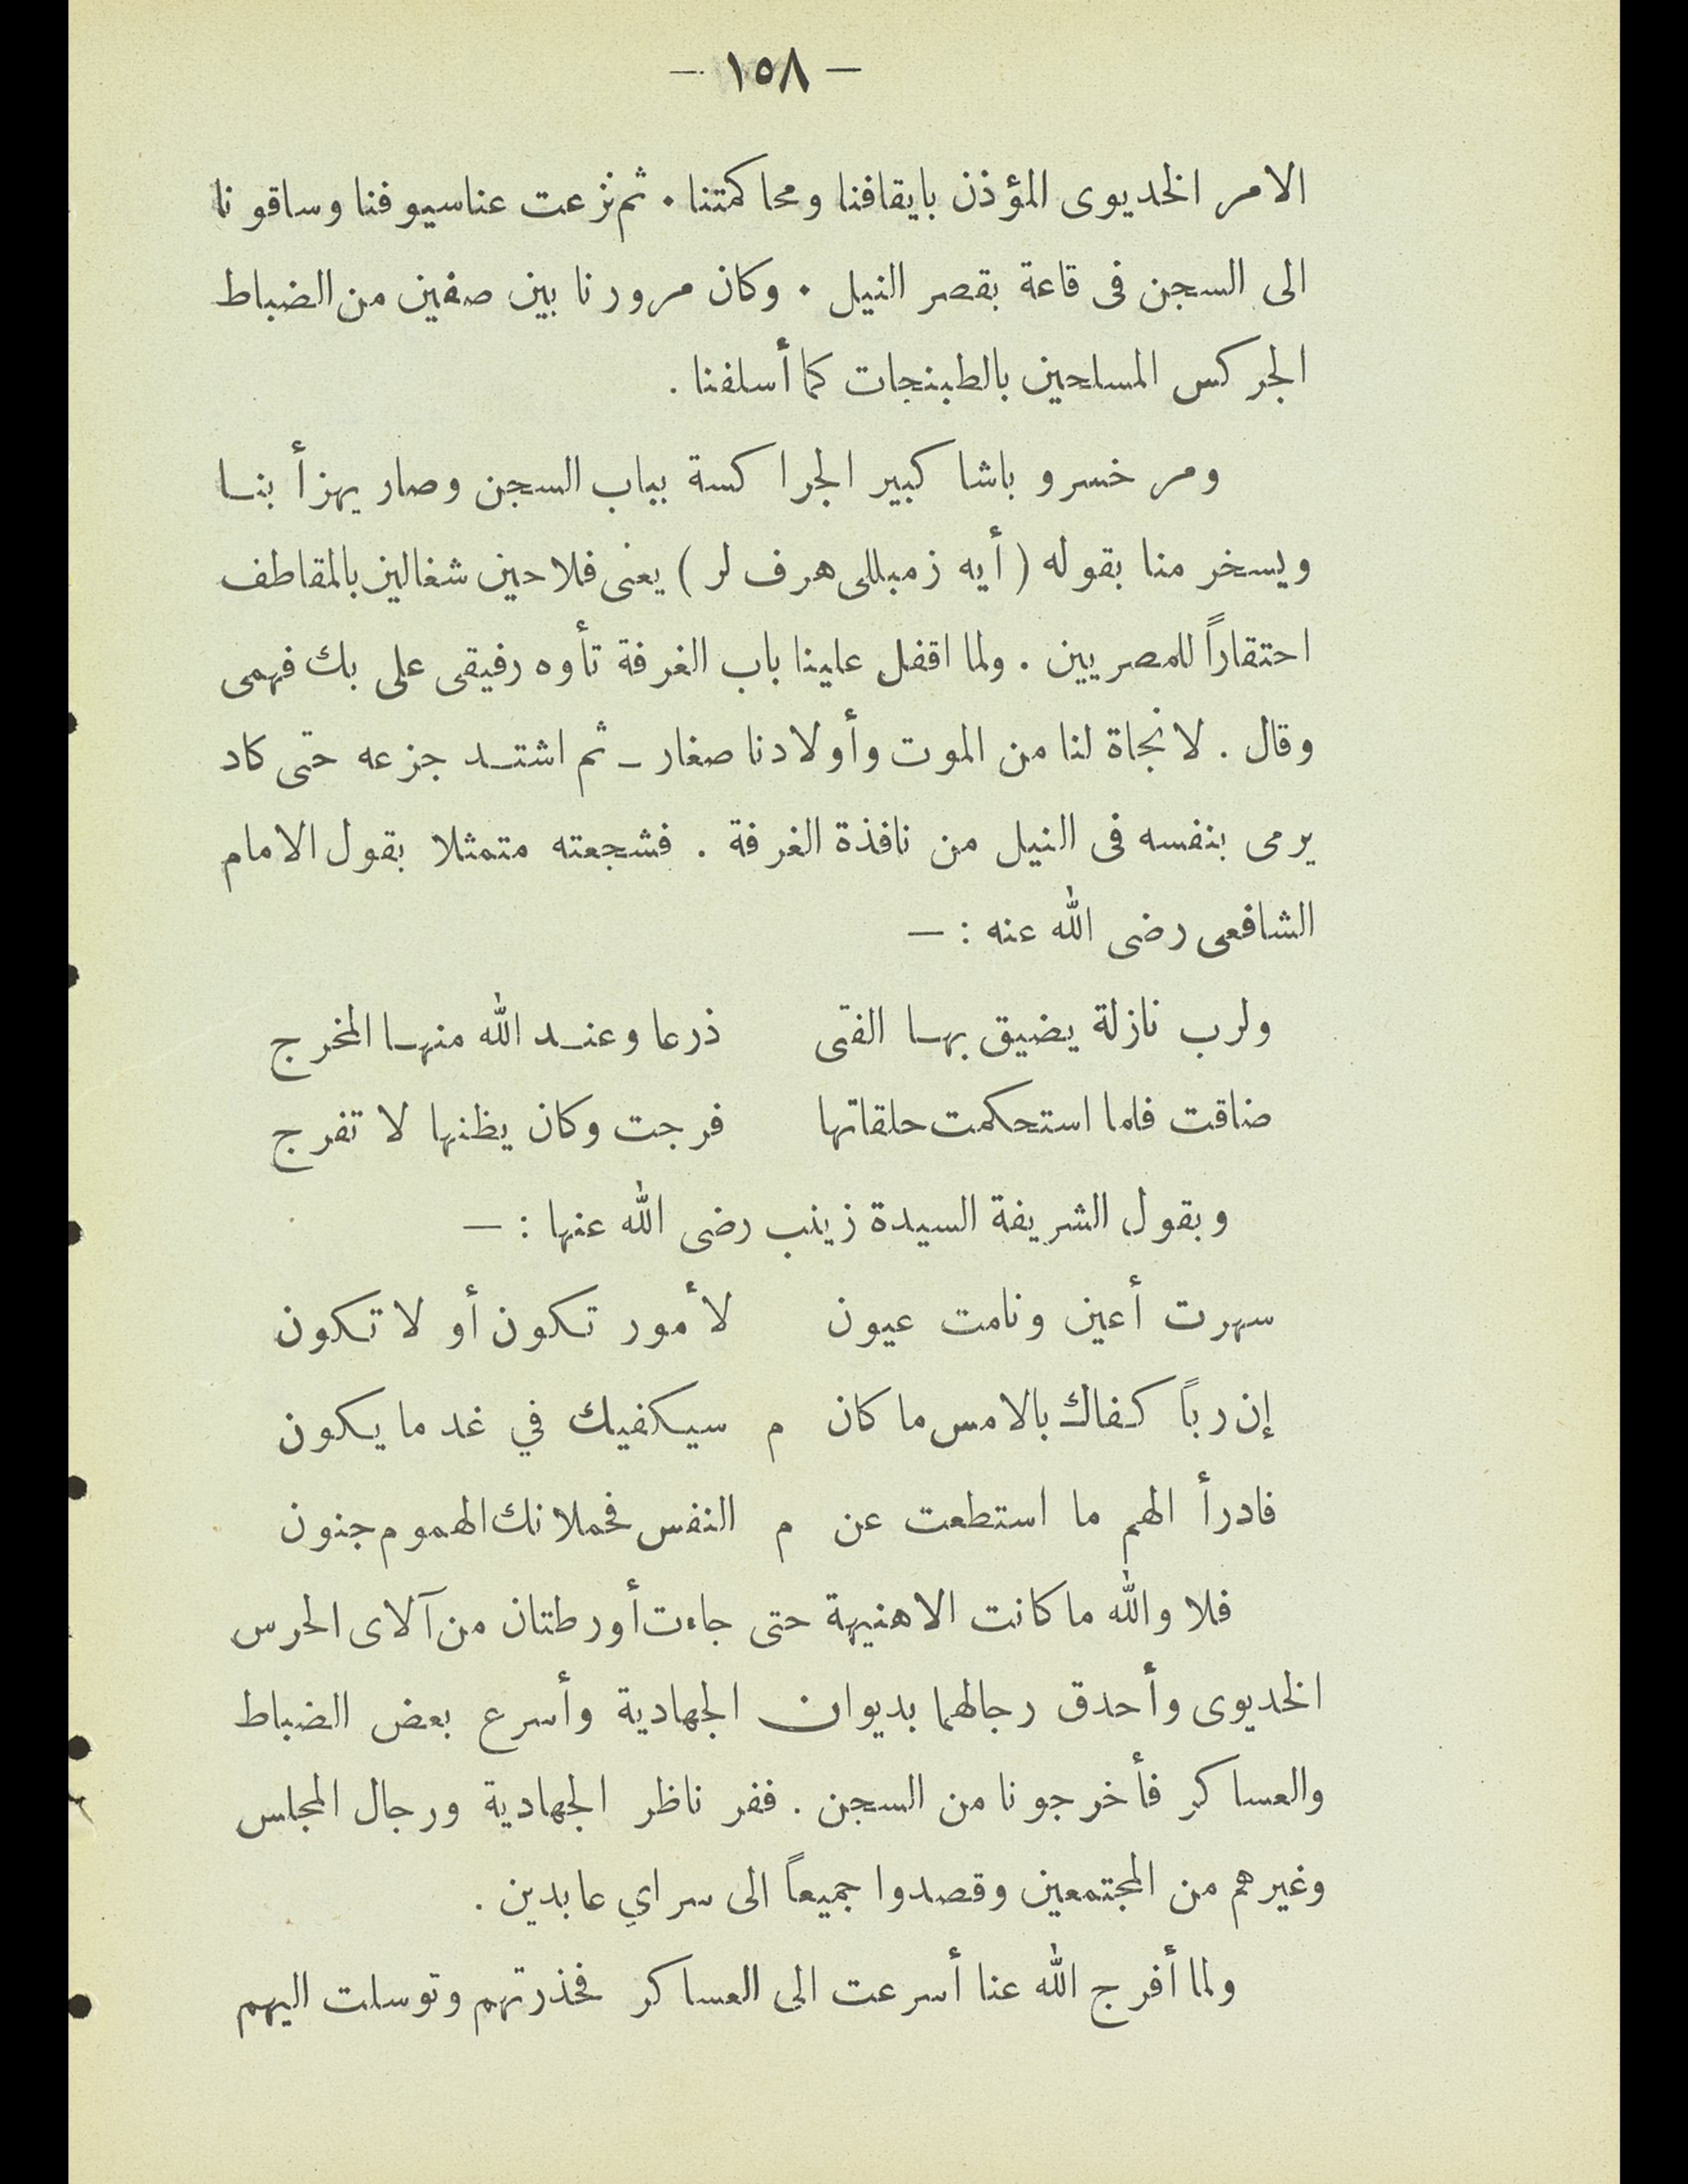 — ١٥٨ —
الامر الخديوى المؤذن بايقافنا ومحاكمتنا . ثم نزعت عنا سيوفنا وساقونا
الى السجن فى قاعة بقصر النيل . وكان مرورنا بين صفين من الضباط
الجركس المسلحين بالطبنجات كما أسلفنا .
ومر خسرو باشا كبير الجراكسة بباب السجن وصار يهزأ بنا
ويسخر منا بقوله ( أيه زمبللى هرف لر ) يعنى فلاحين شغالين بالمقاطف
احتقاراً للمصريين . ولما اقفل علينا باب الغرفة تأوه رفيقى على بك فهمى
وقال . لا نجاة لنا من الموت وأولادنا صغار ـ ثم اشتد جزعه حتى كاد
يرمى بنفسه فى النيل من نافذة الغرفة . فشجعته متمثلا بقول الامام
الشافعى رضى الله عنه : —
ولرب نازلة يضيق بها الفتى ذرعا وعند الله منها المخرج
ضاقت فلما استحكمت حلقاتها فرجت وكان يظنها لا تفرج
وبقول الشريفة السيدة زينب رضى الله عنها : —
سهرت أعين ونامت عيون لأمور تكون أو لا تكون
إن رباً كفاك بالامس ما كان م سيكفيك في غد ما يكون
فادرأ الهم ما استطعت عن م النفس فحملانك الهموم جنون
فلا والله ما كانت الاهنيهة حتى جاءت أورطتان من آلاى الحرس
الخديوى وأحدق رجالهما بديوان الجهادية وأسرع بعض الضباط
والعساكر فأخرجونا من السجن . ففر ناظر الجهادية ورجال المجلس
وغيرهم من المجتمعين وقصدوا جميعاً الى سراي عابدين .
ولما أفرج الله عنا أسرعت الى العساكر فحذرتهم وتوسلت اليهم